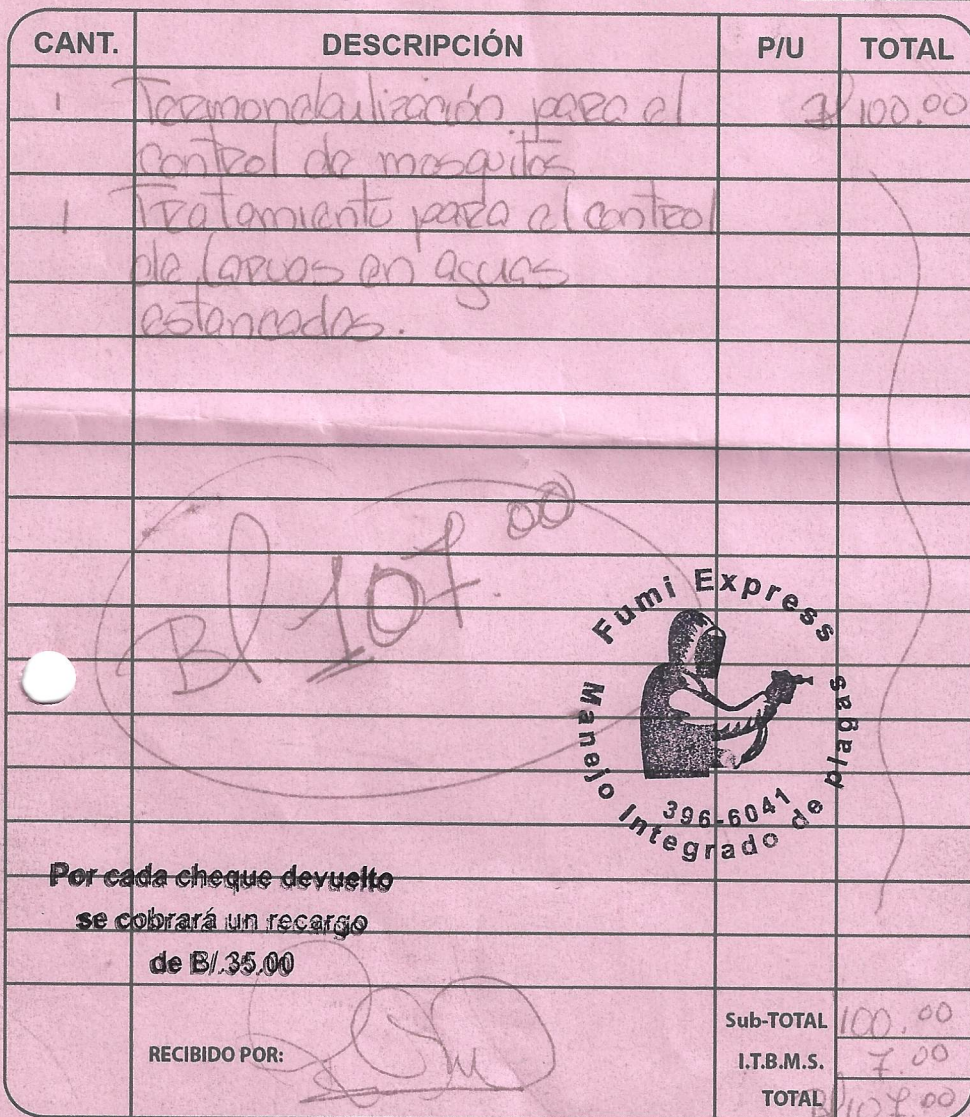 CANT. DESCRIPCIÓN P/U TOTAL
1 Termonebulización para el B/ 100.00
control de mosquitos
1 Tratamiento para el control
de larvas en aguas
estancadas.
B/ 107.00
Fumi Express
Manejo Integrado de plagas
396-6041
Por cada cheque devuelto
se cobrará un recargo
de B/.35.00
Sub-TOTAL 100.00
RECIBIDO POR:
I.T.B.M.S. 7.00
TOTAL B/107.00